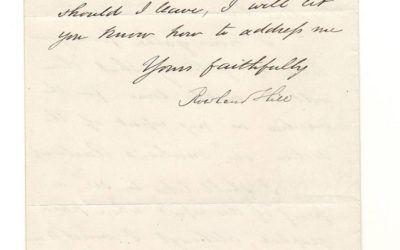 should I leave, I will let
you know how to address me
Yours faithfully
Rowland Hill